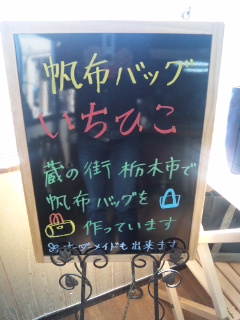 帆布バッグ
いちひこ
蔵の街 栃木市で
帆布バッグを
作っています
オーダーメイドも出来ます